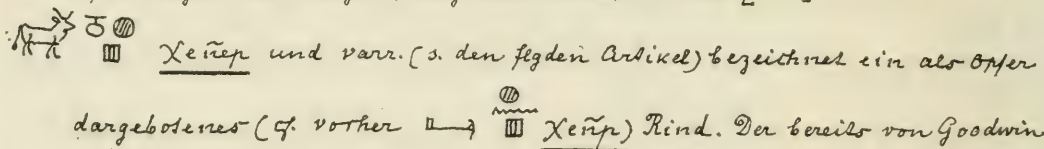 𓃾 𓄑 𓐍 𓊪 χeñep und varr. (s. den flgden Artikel) bezeichnet ein als Opfer
dargebotenes (cf. vorher χeñp) Rind. Der bereits von Goodwin